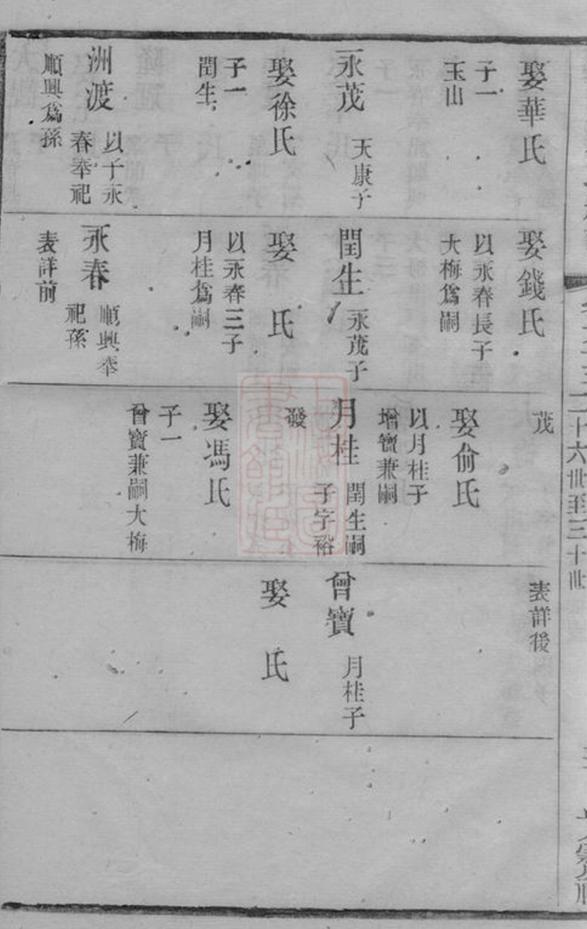 娶華氏
子一
玉山
永茂
天康子
娶徐氏
子一
閏生
洲渡
以子永
春奉祀
順興爲孫
娶錢氏
以永春長子
大梅爲嗣
閏生
永茂子
娶　氏
以永春三子
月桂爲嗣
永春
順興奉
祀孫
表詳前
茂
娶俞氏
以月桂子
增寶兼嗣
月桂
閏生嗣
子字裕
發
娶馮氏
子一
曾寶兼嗣大梅
表詳後
曾寶
月桂子
娶　氏
二十六世至三十世